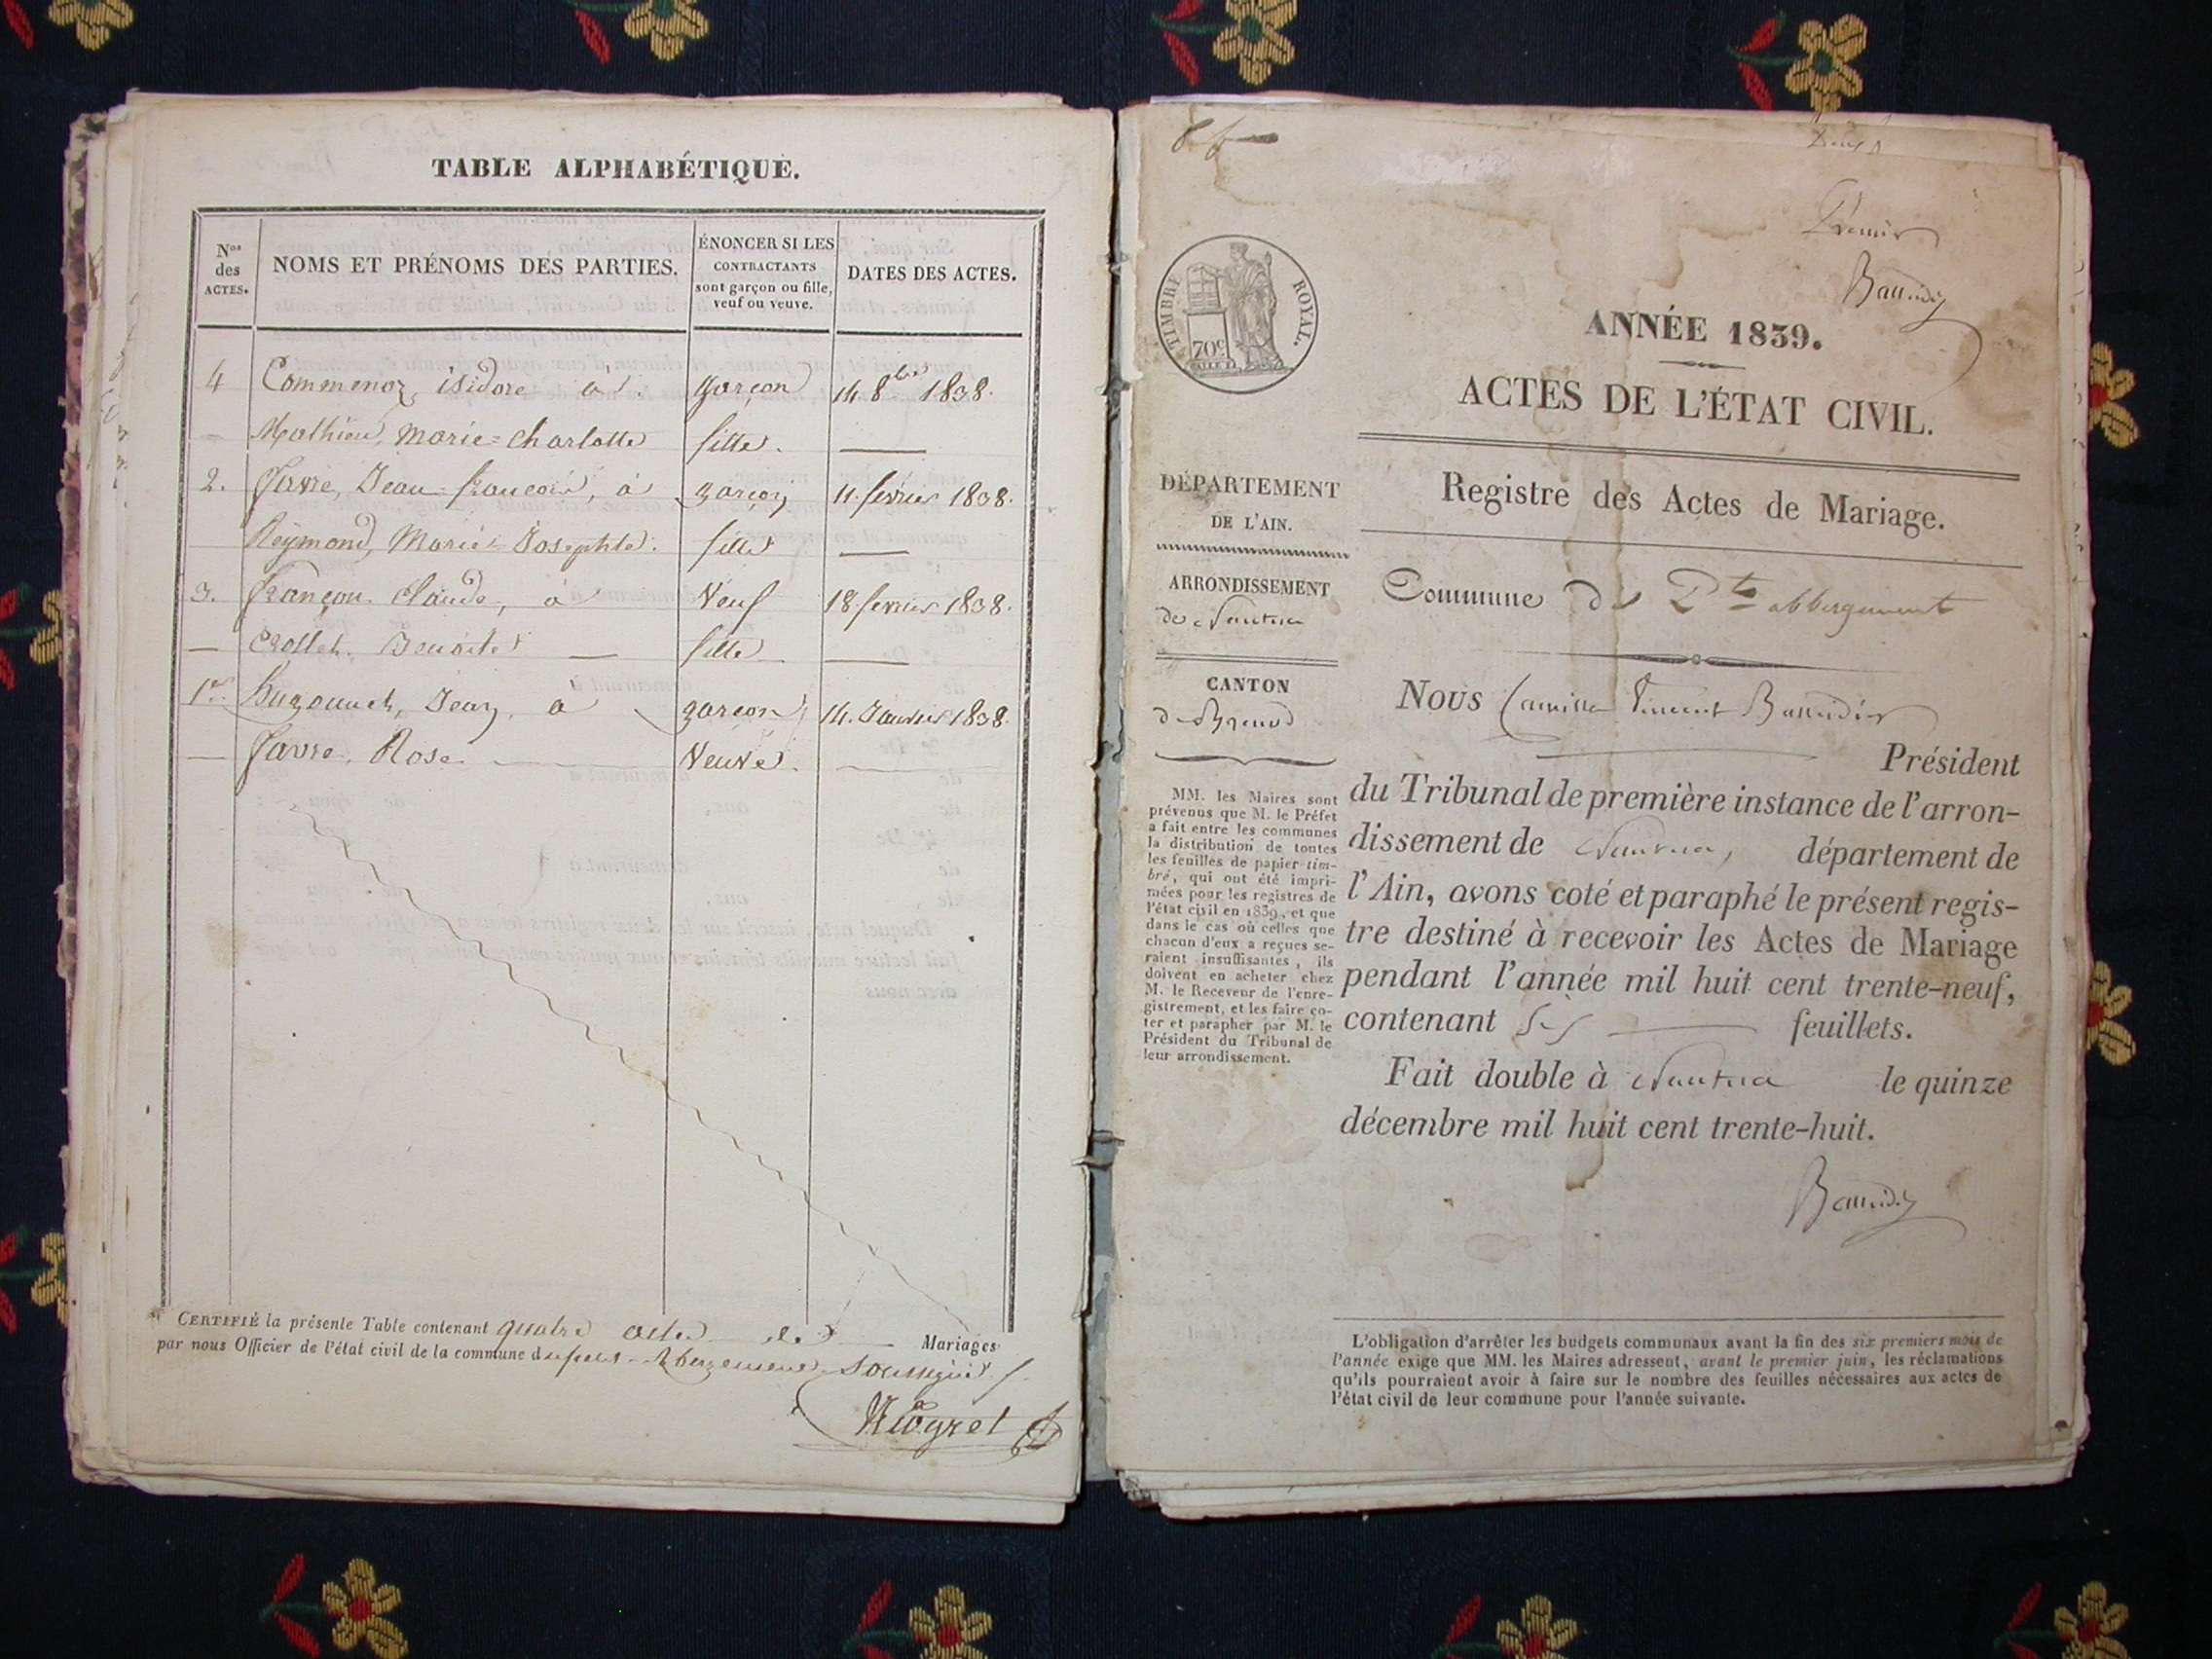 TABLE ALPHABÉTIQUE.
Nos des ACTES.
NOMS ET PRÉNOMS DES PARTIES.
ÉNONCER SI LES CONTRACTANTS sont garçon ou fille, veuf ou veuve.
DATES DES ACTES.
4 Commenoz, isidore à garçon 14 8bre 1838.
— Mathieu, Marie=Charlotte fille. —
2. Favre, Jean-françois, à garçon 11. février 1838.
Reymond, Marie-Josephte. fille —
3. françon Claude, à Veuf 18 février 1838.
— Crollet. Benoite — fille —
1er Jean, à garçon 14. Janvier 1838.
— Favre, Rose — Veuve. —
CERTIFIÉ la présente Table contenant quatre actes de Mariages
par nous Officier de l'état civil de la commune du petit-Abergement Soussigné
Niogret
Premier
Baudin
TIMBRE ROYAL.
70c
ANNÉE 1839.
ACTES DE L'ÉTAT CIVIL.
Registre des Actes de Mariage.
DÉPARTEMENT
DE L'AIN.
ARRONDISSEMENT
de Nantua
CANTON
de Brenod
MM. les Maires sont
prévenus que M. le Préfet
a fait entre les communes
la distribution de toutes
les feuilles de papier tim-
bré, qui ont été impri-
mées pour les registres de
l'état civil en 1839, et que
dans le cas où celles que
chacun d'eux a reçues se-
raient insuffisantes, ils
doivent en acheter chez
M. le Receveur de l'enre-
gistrement, et les faire co-
ter et parapher par M. le
Président du Tribunal de
leur arrondissement.
Commune du Pt abbergement
Nous Camille Vincent
Président
du Tribunal de première instance de l'arron-
dissement de Nantua, département de
l'Ain, avons coté et paraphé le présent regis-
tre destiné à recevoir les Actes de Mariage
pendant l'année mil huit cent trente-neuf,
contenant feuillets.
Fait double à Nantua le quinze
décembre mil huit cent trente-huit.
L'obligation d'arrêter les budgets communaux avant la fin des six premiers mois de
l'année exige que MM. les Maires adressent, avant le premier juin, les réclamations
qu'ils pourraient avoir à faire sur le nombre des feuilles nécessaires aux actes de
l'état civil de leur commune pour l'année suivante.